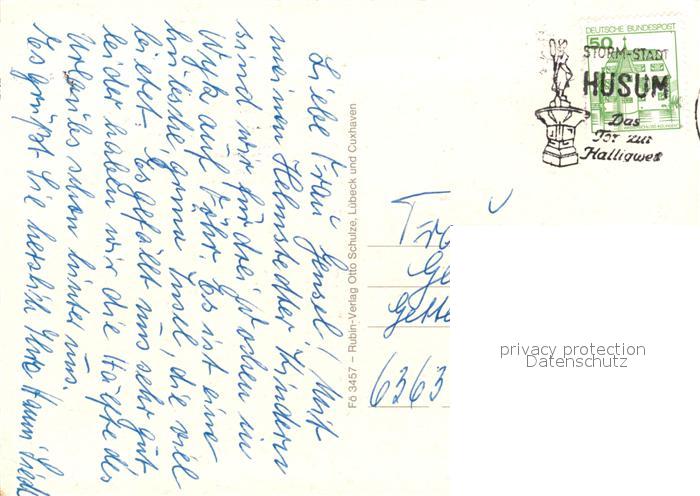 Liebe Frau Gensel! Mit
meinen Helmstedter Kindern
sind wir für drei Wochen in
Wyk auf Föhr. Es ist eine
hübsche grüne Insel, die viel
bietet. Es gefällt uns sehr gut
leider haben wir die Hälfte des
Urlaubes schon hinter uns.
Es grüßt Sie herzlich Ihre Hanni
Fö 3457 – Rubin-Verlag Otto Schulze, Lübeck und Cuxhaven
DEUTSCHE BUNDESPOST
50
STORM-STADT
HUSUM
Das
Tor zur
Halligwelt
Fr
Ge
Gette
6363
privacy protection
Datenschutz